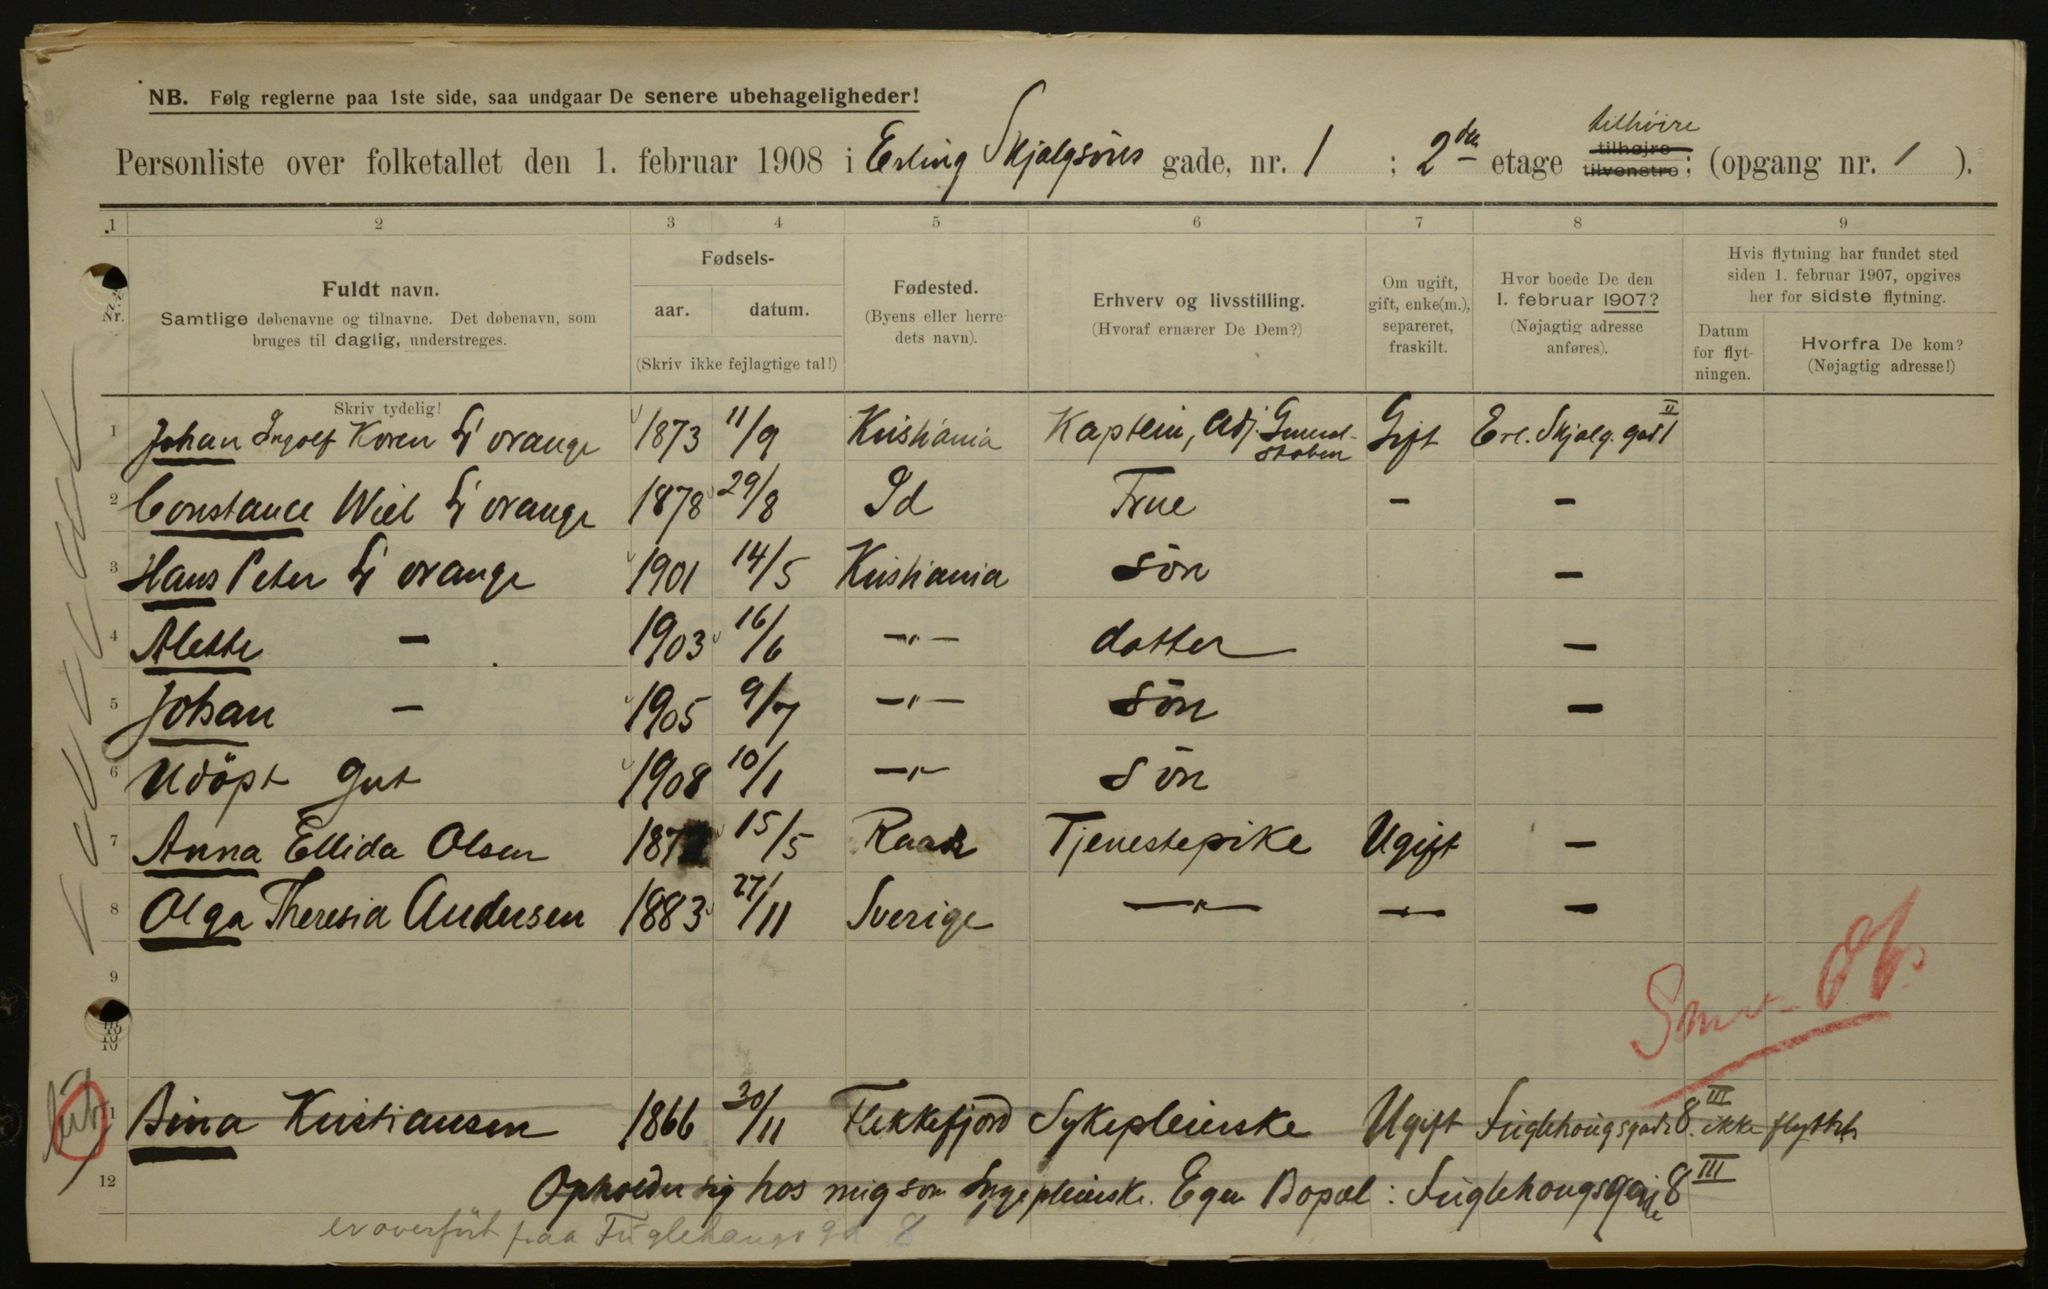 NB. Følg reglerne paa 1ste side, saa undgaar De senere ubehageligheder!
tilhöire
Personliste over folketallet den 1. februar 1908 i Erling Skjalgsöns gade, nr. 1 ; 2den etage tilhøjre tilvenstre; (opgang nr. 1 ).
1 2 3 4 5 6 7 8 9
Nr.
Fuldt navn.
Samtlige døbenavne og tilnavne. Det døbenavn, som
bruges til daglig, understreges.
Skriv tydelig!
Fødsels-
aar. datum.
(Skriv ikke fejlagtige tal!)
Fødested.
(Byens eller herre-
dets navn).
Erhverv og livsstilling.
(Hvoraf ernærer De Dem?)
Om ugift,
gift, enke(m.),
separeret,
fraskilt.
Hvor boede De den
1. februar 1907?
(Nøjagtig adresse
anføres).
Hvis flytning har fundet sted
siden 1. februar 1907, opgives
her for sidste flytning.
Datum
for flyt-
ningen.
Hvorfra De kom?
(Nøjagtig adresse!)
1 Johan Ingolf Koren L'orange 1873 11/9 Kristiania Kaptein, Adj. General-staben Gift Erl. Skjalg. gad 1 II
2 Constance Wiel L'orange 1878 29/8 Id Frue - -
3 Hans Peter L'orange 1901 14/5 Kristiania sön -
4 Alette - 1903 16/6 -"- datter -
5 Johan - 1905 9/7 -"- sön -
6 Udöpt Gut 1908 10/1 -"- sön
7 Anna Ellida Olsen 187 15/5 Raade Tjenestepike Ugift -
8 Olga Theresia Andersen 1883 27/11 Sverige -"- -"- -
9
10
11 Bina Kristiansen 1866 30/11 Flekkefjord Sykepleierske Ugift Fuglehougsgade 8 III ikke flyttet
12 Opholder sig hos mig som Sygepleierske. Egen Bopæl: Fuglehougsgade 8 III
er overfört paa Fuglehaugs gd 8